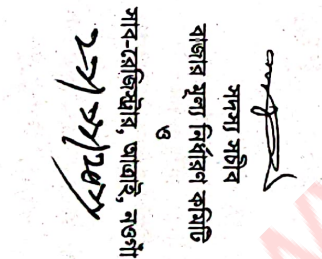 সদস্য সচিব
বাজার মূল্য নির্ধারণ কমিটি
ও
সাব-রেজিস্ট্রার, আত্রাই, নওগাঁ